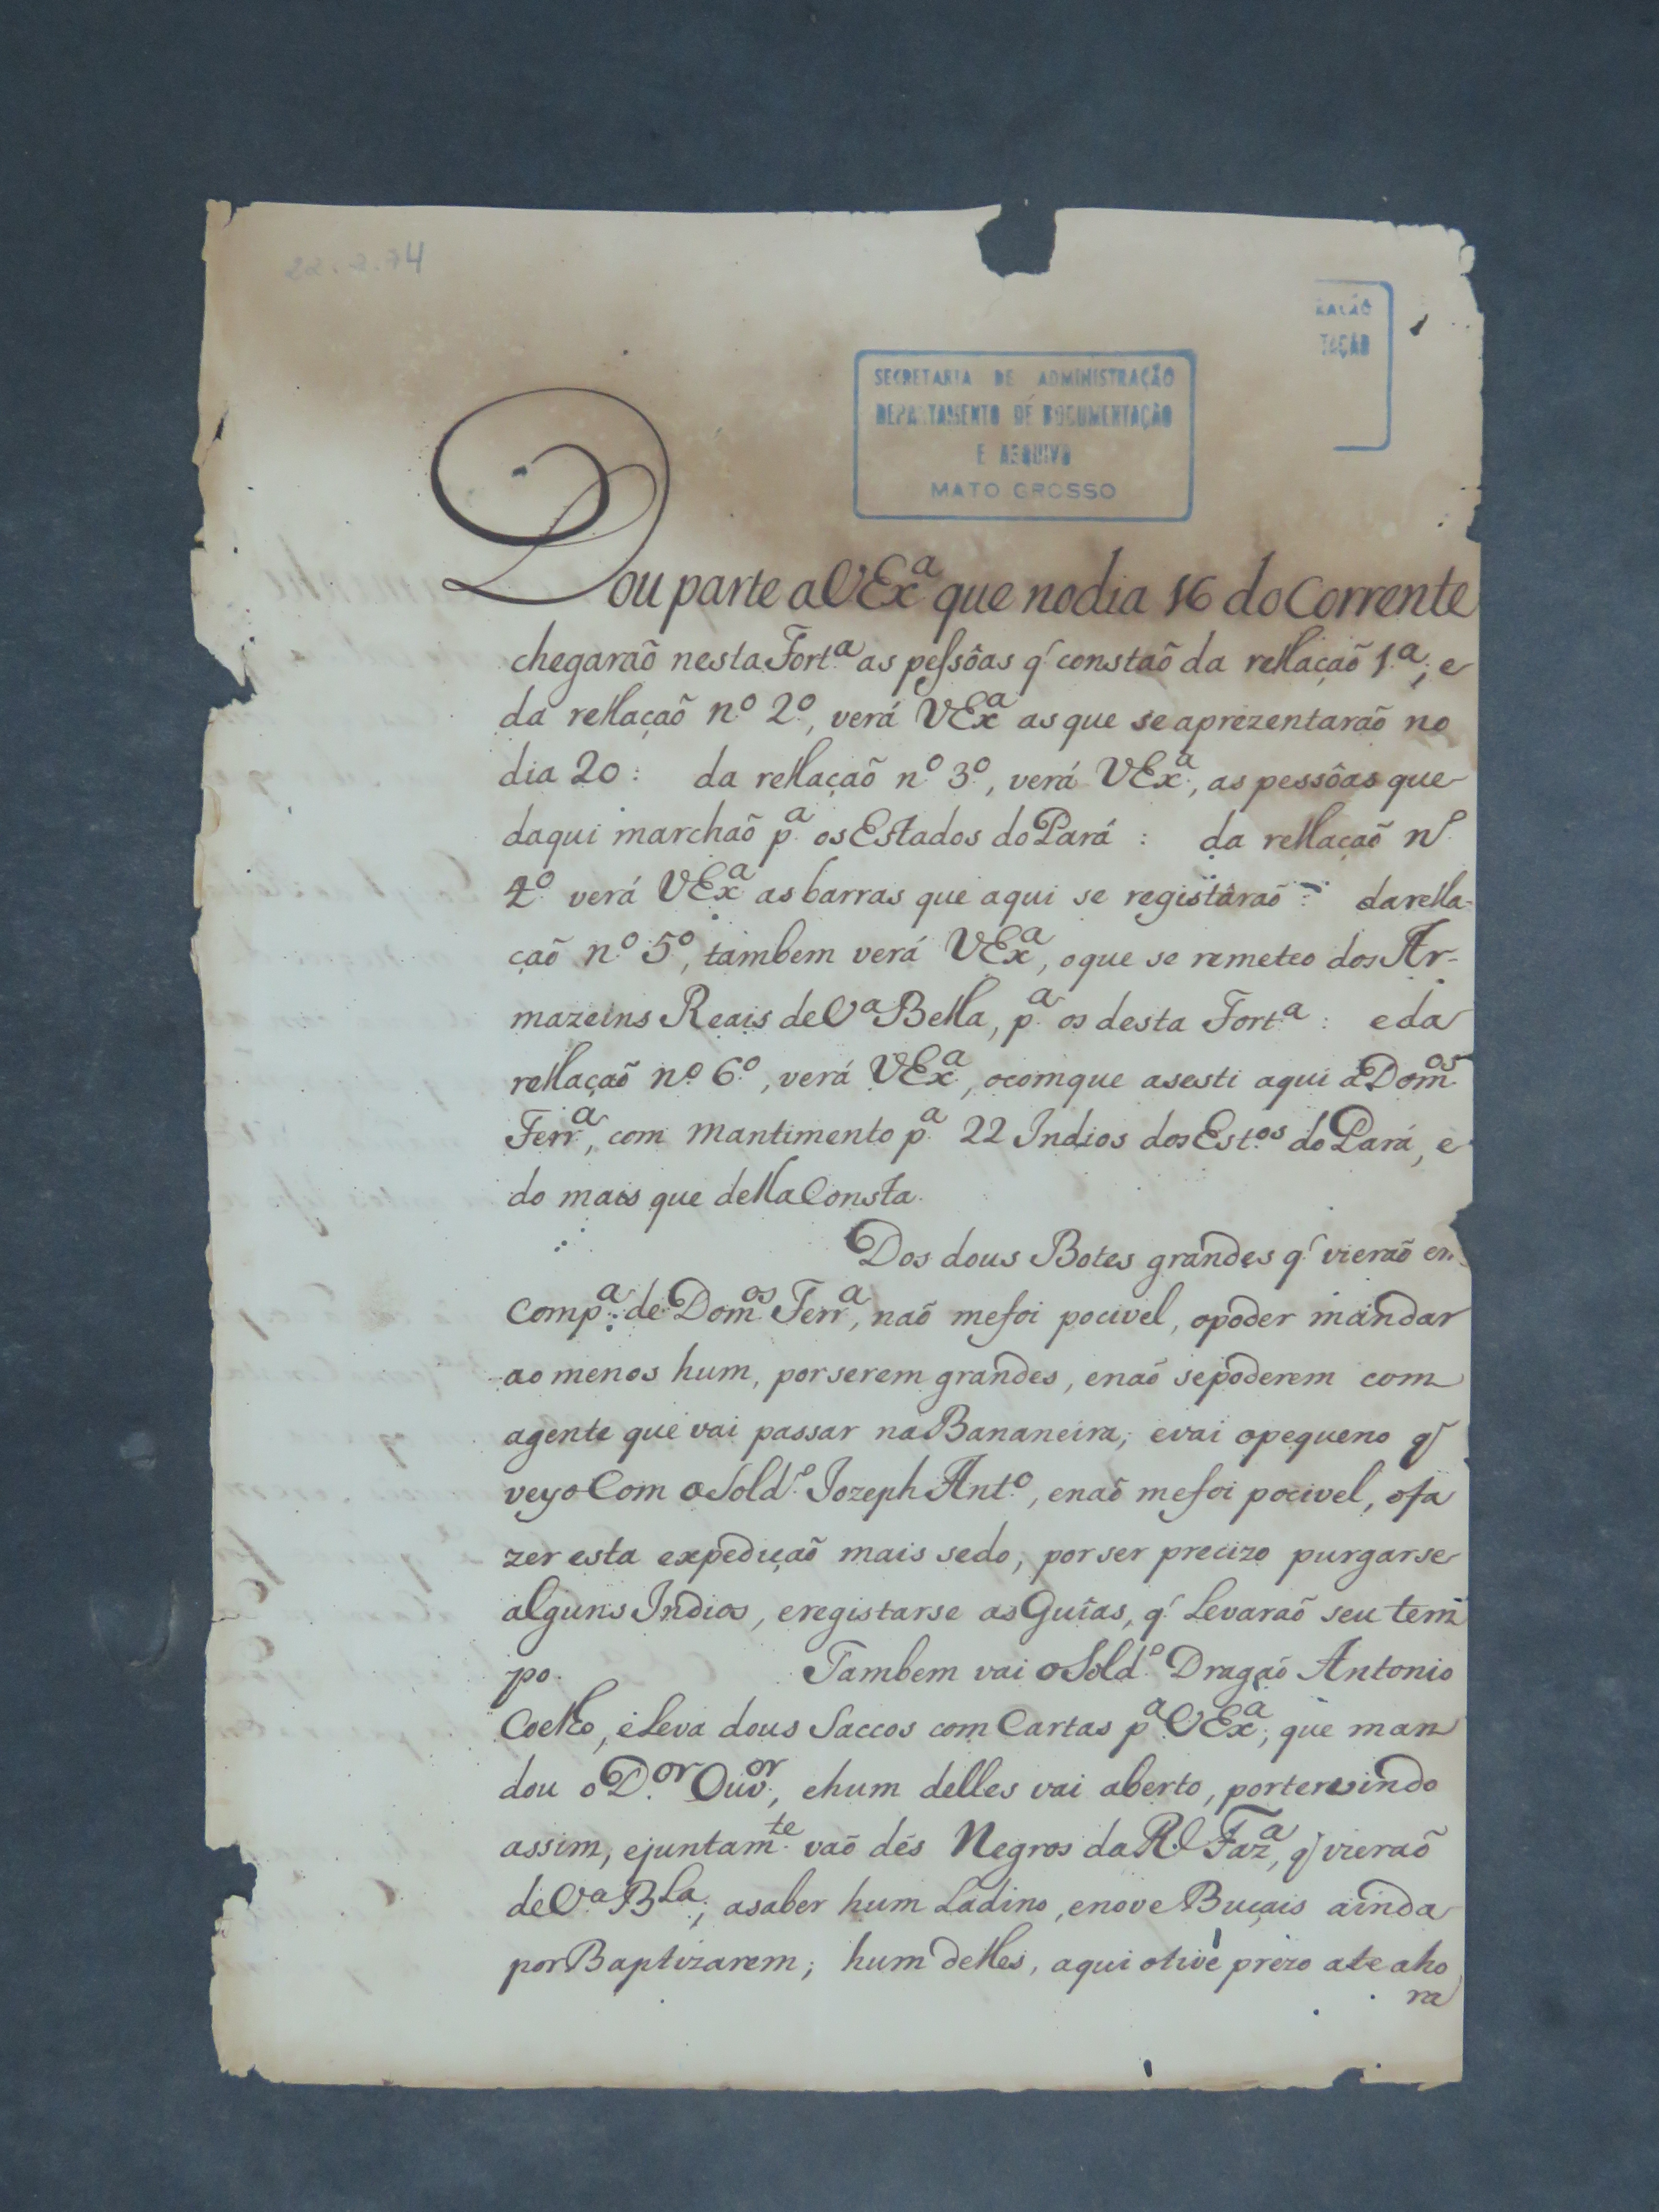 22.2.74
RAÇÃO
TAÇÃO
SECRETARIA DE ADMINISTRAÇÃO
DEPARTAMENTO DE DOCUMENTAÇÃO
E ARQUIVO
MATO GROSSO
Dou parte a VExª que nodia 16 do Corrente
chegaraõ nesta Fortª as peſsôas q' constaõ da rellaçaõ 1ª; e
da rellaçaõ nº 2º, verá VExª as que se aprezentaraõ no
dia 20: da rellaçaõ nº 3º, verá VExª, as pessôas que
daqui marchaõ pª os Estados do Pará : da rellaçaõ nº
4º verá VExª as barras que aqui se registâraõ : darella-
çaõ nº 5º, tambem verá VExª, oque se remeteo dos Ar-
mazeins Reais de Vª Bella, pª os desta Fortª : eda
rellaçaõ nº 6º, verá VExª, ocomque asesti aqui a Domºs
Ferrª, com mantimento pª 22 Indios dos Estºs do Pará, e
do mais que della Consta.
Dos dous Botes grandes q' vieraõ em
Compª: de Domºs Ferrª, naõ mefoi pocivel, opoder mandar
ao menos hum, porserem grandes, enaõ sepoderem com
agente que vai passar na Bananeira; evai opequeno q'
veyo Com o Soldº Jozeph Antº, enaõ mefoi pocivel, ofa
zer esta expediçaõ mais sedo, porser precizo purgarse
alguns Indios, eregistarse as Guîas, q' Levaraõ seu tem
po. Tambem vai o Soldº Dragaõ Antonio
Coelho, e Leva dous Saccos com Cartas pª VExª; que man
dou o D.or Ouv.or, ehum delles vai aberto, portervindo
assim, ejuntamte vaõ dés Negros da Rl Fazª, q' vieraõ
de Vª Bla; asaber hum Ladino, enove Buçais ainda
por Baptizarem; hum delles, aqui otive prezo ate aho
ra